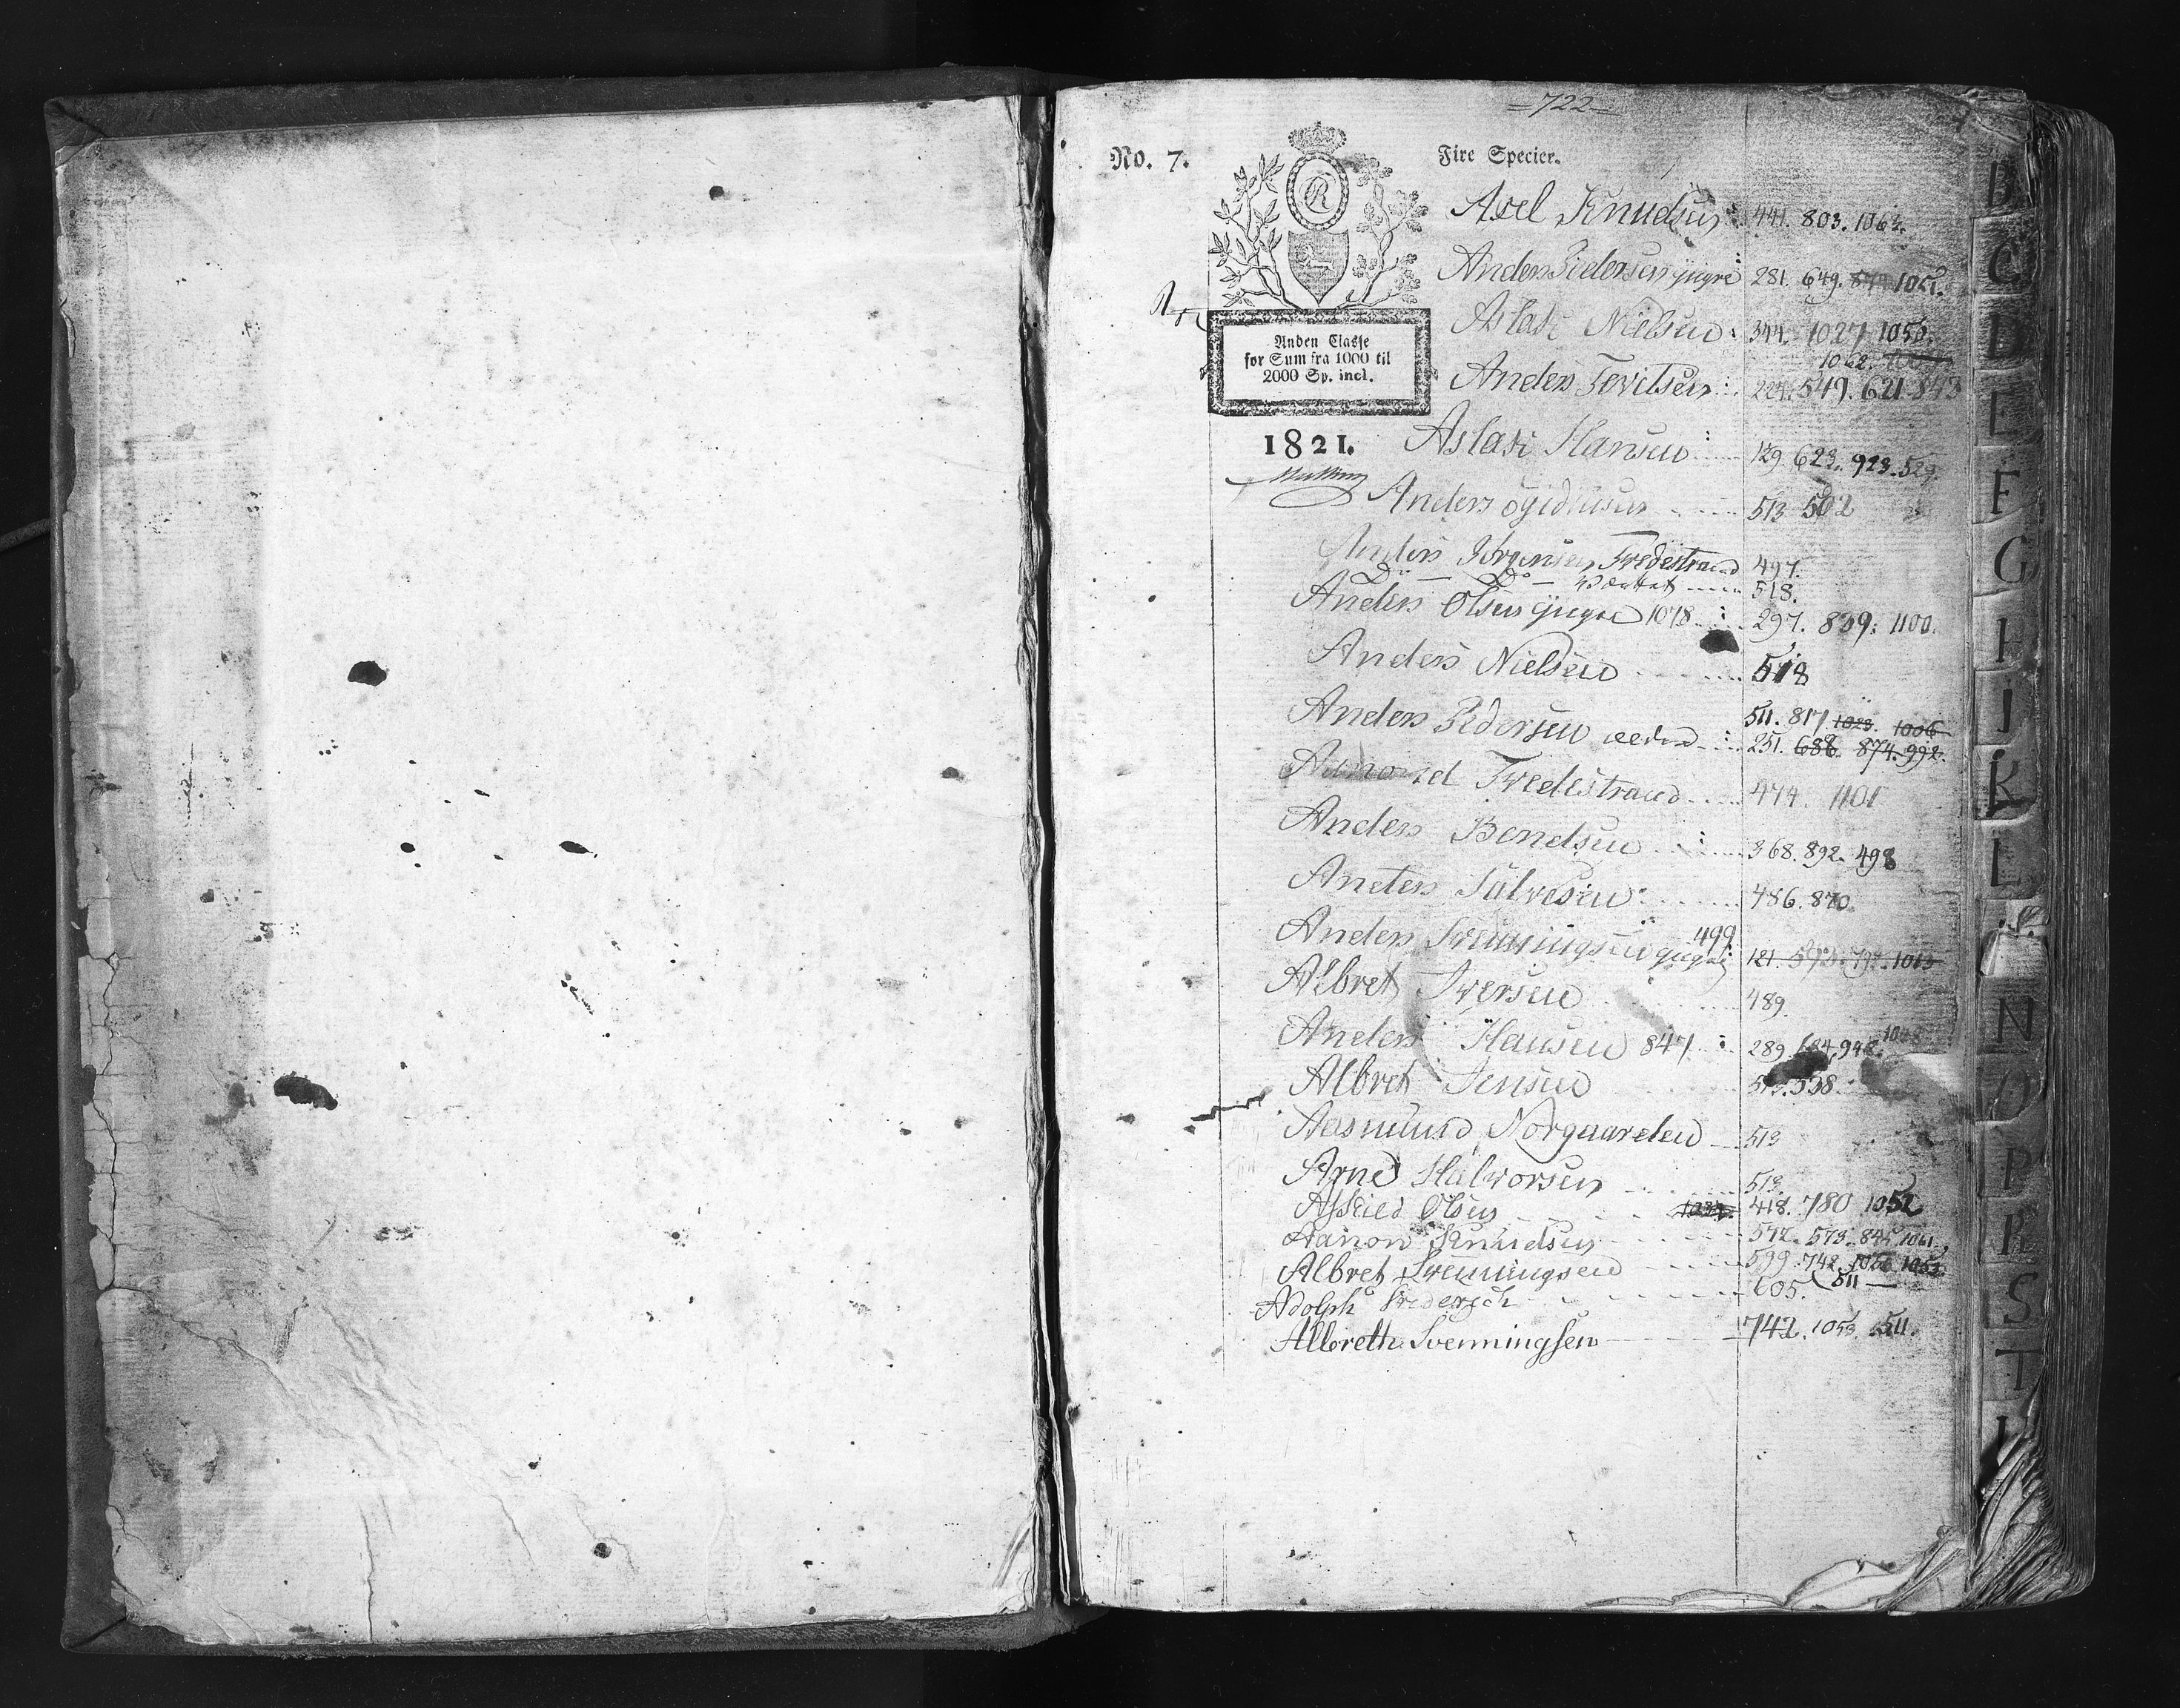 =722=
No. 7.
Fire Specier.
R
Anden Classe
for Sum fra 1000 til
2000 Sp. incl.
1821.
Axel Knudsen 441. 803. 1062.
Anders Pedersen yngre 281. 649. 1051.
Aslak Nielsen 344. 1027 1056.
1062.
Anders Tovelsen 224. 549. 621. 843
Aslak Hansen 129. 623. 923. 529.
Anders Ögidiusen 513 502
Anders Jörgensen Tvedestrand 497.
D° — D° — 518.
Anders Olsen yngre 1078 297. 809. 1100.
Anders Nielsen 518
511. 817 1023. 1006
Anders Pedersen ældre 251. 686. 874. 992.
Amond Tvedestrand 474. 1101
Anders Bendsen 368. 892. 498
Anders Sálvesen 486. 870.
Anders Svenningsen yngre 499 121. 592. 792. 1013
Albret Iversen 489.
Anders Hansen 847 289. 684. 948.
Albret Jensen 513. 538.
Aasmund Norgaarden 513
Arne Halvorsen 513
Asseied Olsen 418. 780 1052
Aanon Knudsen 572. 573. 845. 1061
Albret Svenningsen 599. 742. 1026. 1053
Adolph Friderich 605. 511 —
Albreth Svenningsen 742. 1053. 511.
B
C
D
E
F
G
H
I
K
L
N
O
P
R
S
T